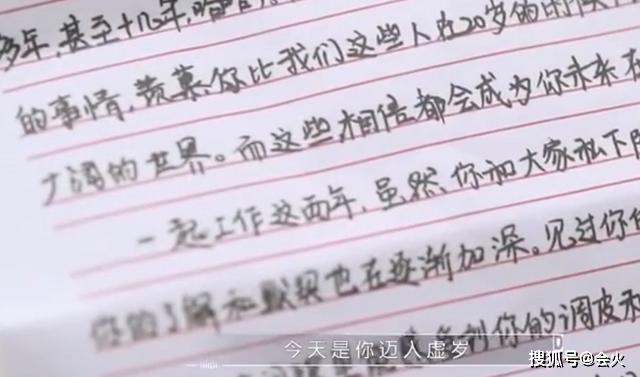 多年,甚至十几年,
的事情,羡慕你比我们这些人在20岁的时候
广阔的世界。而这些,相信都会成为你未来
一起工作这两年,虽然,你和大家私下
你的了解和默契也在逐渐加深。见过你
到你的调皮和
今天是你迈入虚岁
搜狐号@会火